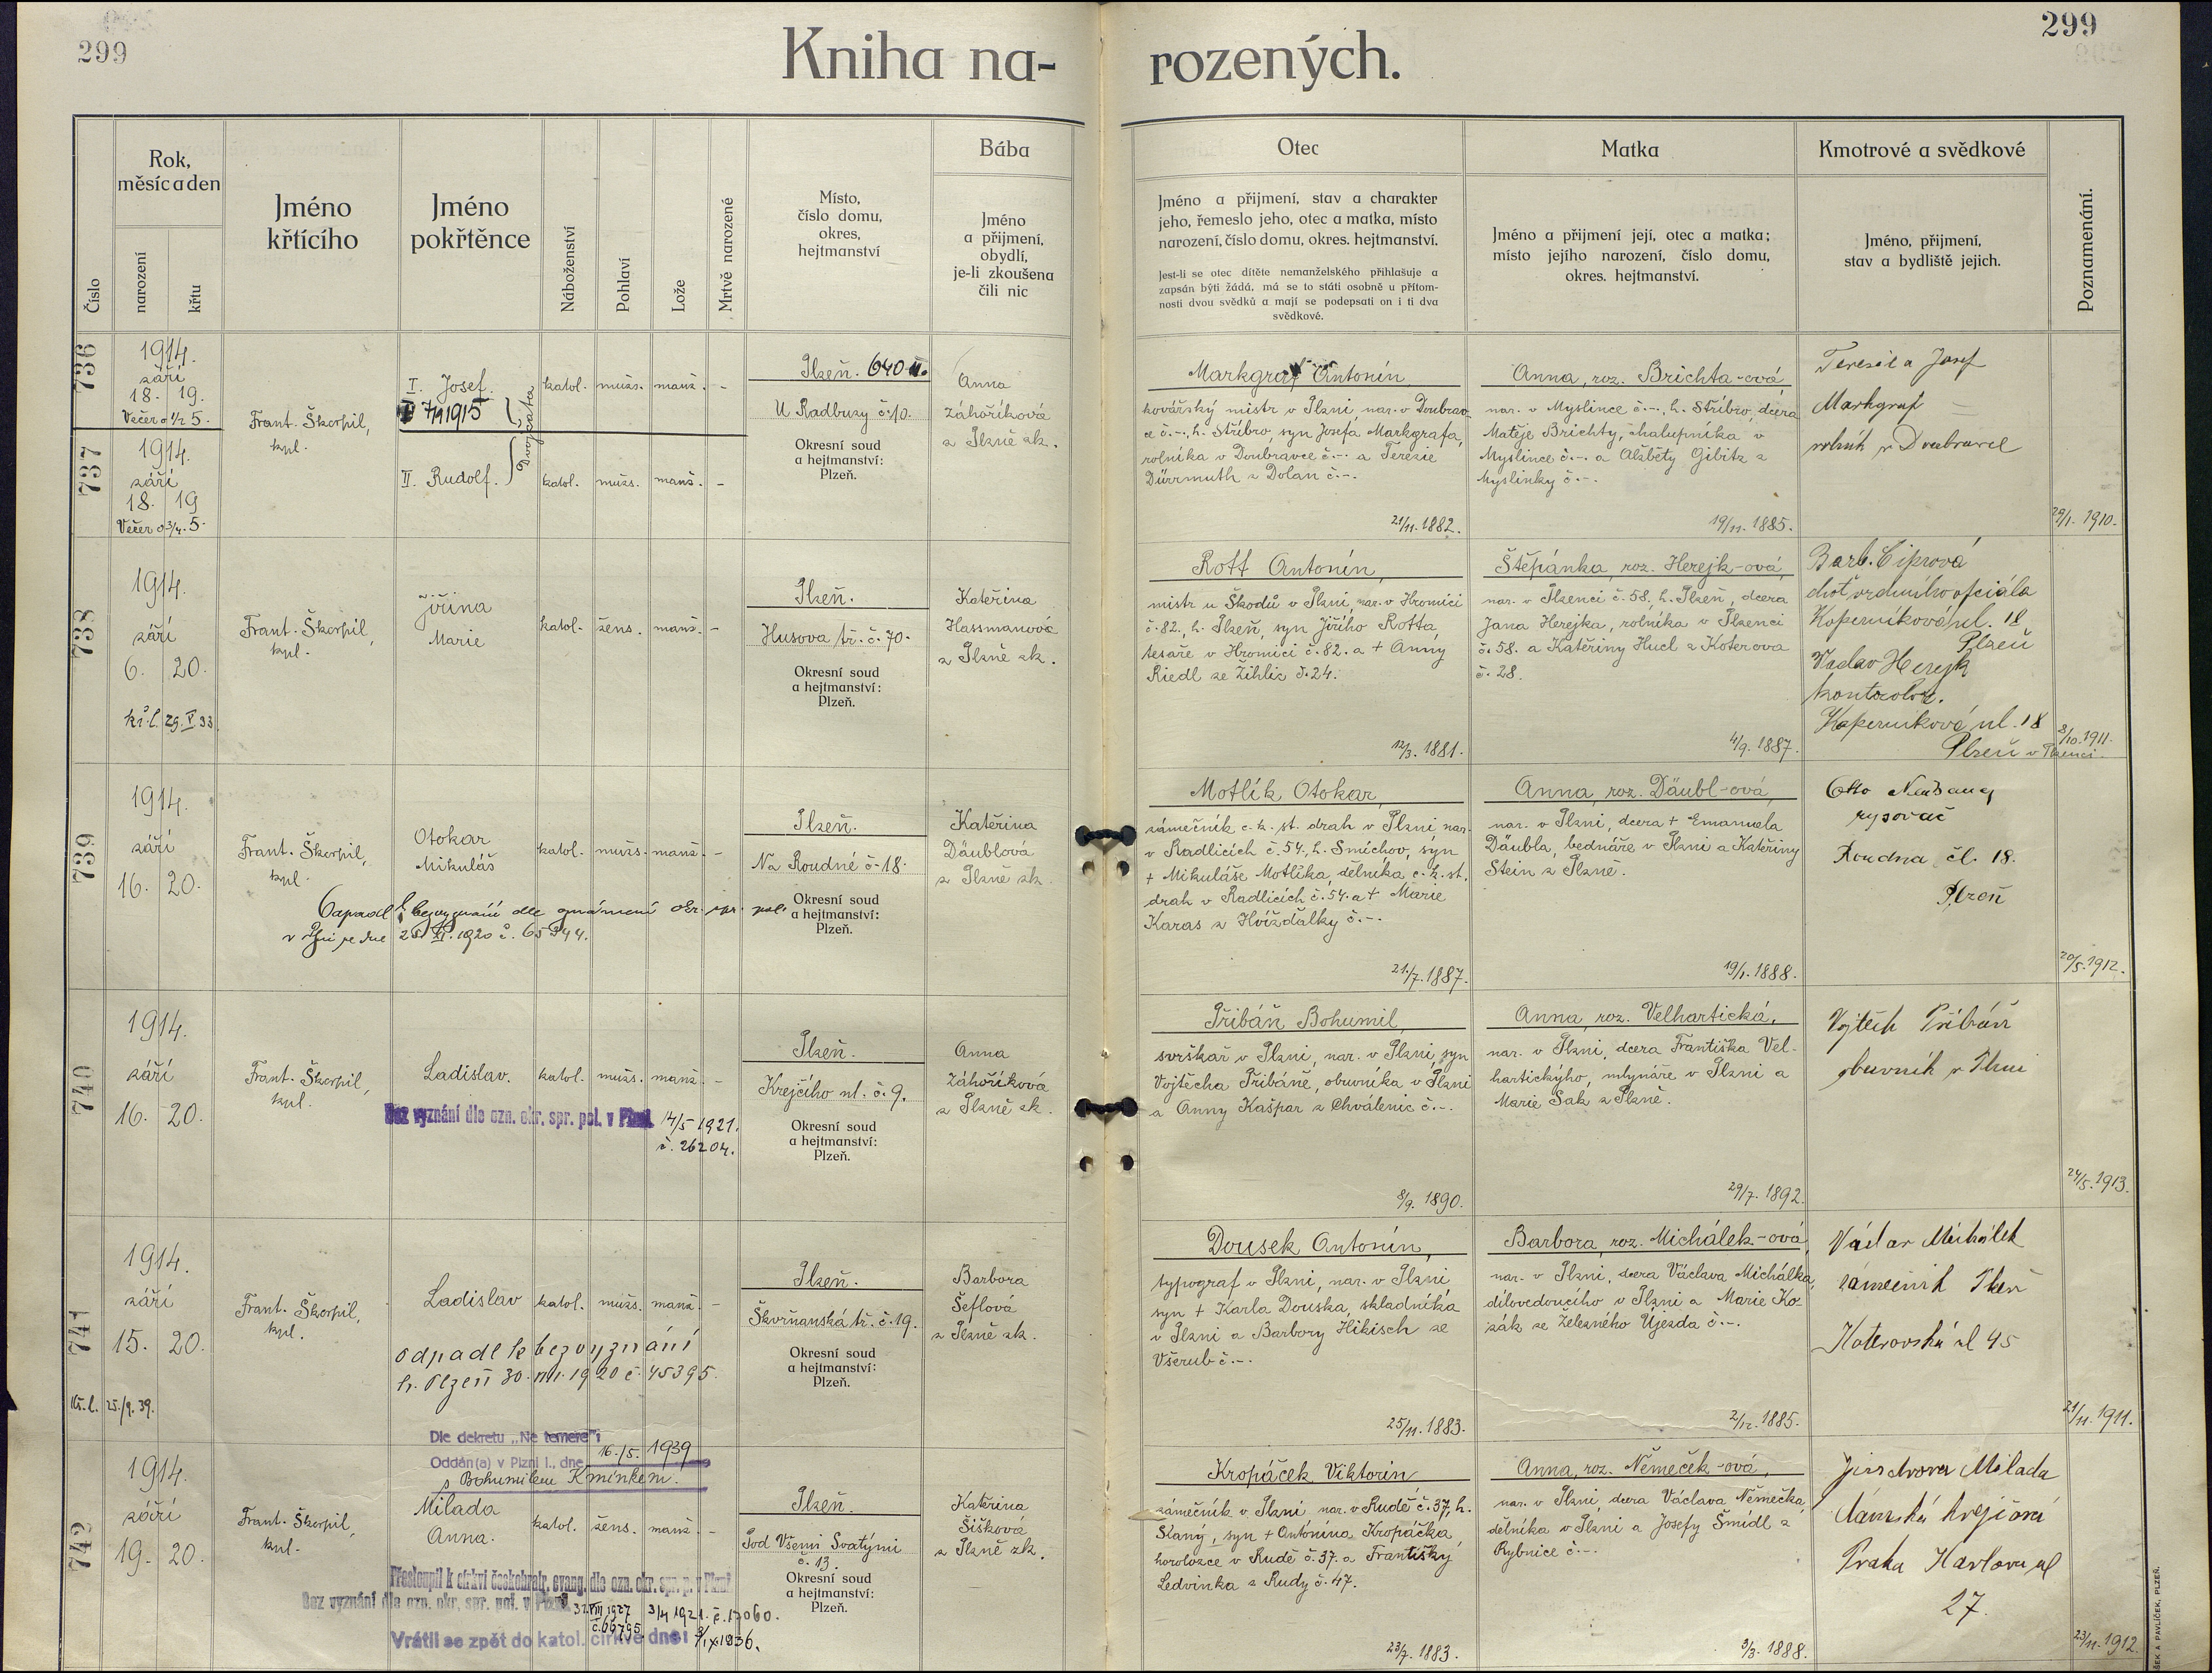 299
299
Kniha na-
rozených.
Číslo
Rok,
měsíc a den
narození
křtu
Jméno
křtícího
Jméno
pokřtěnce
Náboženství
Pohlaví
Lože
Mrtvě narozené
Místo,
číslo domu,
okres,
hejtmanství
Bába
Jméno
a přijmení,
obydlí,
je-li zkoušena
čili nic
Otec
Jméno a přijmení, stav a charakter
jeho, řemeslo jeho, otec a matka, místo
narození, číslo domu, okres. hejtmanství.
Jest-li se otec dítěte nemanželského přihlašuje a
zapsán býti žádá, má se to státi osobně u přítom-
nosti dvou svědků a mají se podepsati on i ti dva
svědkové.
Matka
Jméno a přijmení její, otec a matka;
místo jejího narození, číslo domu,
okres. hejtmanství.
Kmotrové a svědkové
Jméno, přijmení,
stav a bydliště jejich.
Poznamenání.
736
1914.
září
18. 19.
Večer o ½ 5.
737
1914.
září
18. 19
Večer o ¾ 5.
Frant. Škorpil,
kpl.
I. Josef.
7/9 1915
II. Rudolf.
Dvojčata
katol. mužs. manž. -
katol. mužs. manž. -
Plzeň. 640
U Radbuzy č. 10.
Okresní soud
a hejtmanství:
Plzeň.
Anna
Záhoříková
z Plzně zk.
Markgraf Antonín
kovářský mistr v Plzni, nar. v Doubrav-
ce č. -., h. Stříbro, syn Josefa Markgrafa,
rolníka v Doubravce č. -. a Terezie
Dürrmuth z Dolan č. -.
21/11. 1882.
Anna, roz. Brichta-ová
nar. v Myslince č. -., h. Stříbro, dcera
Matěje Brichty, chalupníka v
Myslince č. -. a Alžběty Gibitz z
Myslinky č. -.
19/11. 1885.
Terezie a Josef
Markgraf
rolník v Doubravce
29/1. 1910.
738
1914.
září
6. 20.
kř. l. 29. V 33
Frant. Škorpil,
kpl.
Jiřina
Marie
katol. žens. manž. -
Plzeň.
Husova tř. č. 70.
Okresní soud
a hejtmanství:
Plzeň.
Kateřina
Hassmanová
z Plzně zk.
Rott Antonín,
mistr u Škodů v Plzni, nar. v Hromici
č. 82., h. Plzeň, syn Jiřího Rotta,
tesaře v Hromici č. 82. a + Anny
Riedl ze Žihlic č. 24.
12/3. 1881.
Štěpánka, roz. Herejk-ová,
nar. v Plzenci č. 58., h. Plzeň, dcera
Jana Herejka, rolníka v Plzenci
č. 58. a Kateřiny Hucl z Koterova
č. 28.
4/9. 1887.
Barb. Ciprová
choť vrchního oficiála
Koperníková ul. 18
Plzeň
Václav Herejk
kontrolor.
Koperníková ul. 18
Plzeň
8/10. 1911.
v Plzenci.
739
1914.
září
16. 20.
Frant. Škorpil,
kpl.
Otokar
Mikuláš
katol. mužs. manž. -
Odpadl k bezvyznání dle oznámení okr. spr. pol.
v Plzni ze dne 25. XI. 1920 č. 65944.
Plzeň.
Na Roudné č. 18.
Okresní soud
a hejtmanství:
Plzeň.
Kateřina
Däublová
z Plzně zk.
Motlík Otokar,
zámečník c. k. st. drah v Plzni, nar.
v Radlicích č. 54., h. Smíchov, syn
+ Mikuláše Motlíka, dělníka c. k. st.
drah v Radlicích č. 54. a + Marie
Karas z Hvížďalky č. -.
21./7. 1887.
Anna, roz. Däubl-ová,
nar. v Plzni, dcera + Emanuela
Däubla, bednáře v Plzni a Kateřiny
Stein z Plzně.
19/1. 1888.
Otto
rysovač
Roudna čl. 18.
Plzeň
20/5. 1912.
740
1914.
září
16. 20.
Frant. Škorpil,
kpl.
Ladislav.
katol. mužs. manž. -
Bez vyznání dle ozn. okr. spr. pol. v Plzni 14/5 1921.
č. 26204.
Plzeň.
Krejčího ul. č. 9.
Okresní soud
a hejtmanství:
Plzeň.
Anna
Záhoříková
z Plzně zk.
Přibáň Bohumil,
svrškař v Plzni, nar. v Plzni, syn
Vojtěcha Přibáně, obuvníka v Plzni
a Anny Kašpar z Chválenic č. -.
8/9. 1890.
Anna, roz. Velhartická,
nar. v Plzni, dcera Františka Vel-
hartického, mlynáře v Plzni a
Marie Sak z Plzně.
29/7. 1892.
Vojtěch Přibáň
obuvník v Plzni
24/5. 1913.
741
1914.
září
15. 20.
Kř. l. 25./9. 39.
Frant. Škorpil,
kpl.
Ladislav
katol. mužs. manž. -
odpadl k bezvyznání
h. Plzeň 30. VII. 1920 č. 45395.
Plzeň.
Škvrňanská tř. č. 19.
Okresní soud
a hejtmanství:
Plzeň.
Barbora
Šeflová
z Plzně zk.
Dousek Antonín,
typograf v Plzni, nar. v Plzni
syn + Karla Douska, skladníka
v Plzni a Barbory Hikisch ze
Všerub č. -.
25/11. 1883.
Barbora, roz. Michálek-ová,
nar. v Plzni, dcera Václava Michálka,
dílovedoucího v Plzni a Marie Ko-
zák ze Železného Újezda č. -.
2/12. 1885.
Václav Michálek
zámečník Plzeň
Koterovská ul 45
21/11. 1911.
742
1914.
září
19. 20.
Frant. Škorpil,
kpl.
Dle dekretu „Ne temere" i
Oddán(a) v Plzni I., dne 16./5. 1939
s Bohumilem Kmínkem.
Milada
Anna.
katol. žens. manž. -
Přestoupil k církvi českobratr. evang. dle ozn. okr. spr. p. v Plzni
Bez vyznání dle ozn. okr. spr. pol. v Plzni 31. VIII 1927 3/4 1921. č. 17060.
č. 66795
Vrátil se zpět do katol. církve dne: 9/IX 1936.
Plzeň.
Pod Všemi Svatými
č. 13.
Okresní soud
a hejtmanství:
Plzeň.
Kateřina
Šišková
z Plzně zk.
Kropáček Viktorin
zámečník v Plzni, nar. v Rudě č. 37, h.
Slaný, syn + Antonína Kropáčka,
horolozce v Rudě č. 37. a Františky
Ledvinka z Rudy č. 47.
23/7. 1883.
Anna, roz. Němeček-ová,
nar. v Plzni, dcera Václava Němečka,
dělníka v Plzni a Josefy Šmídl z
Rybnice č. -.
9/3. 1888.
Milada
dámská krejčová
Praha Karlova ul
27.
23/11. 1912.